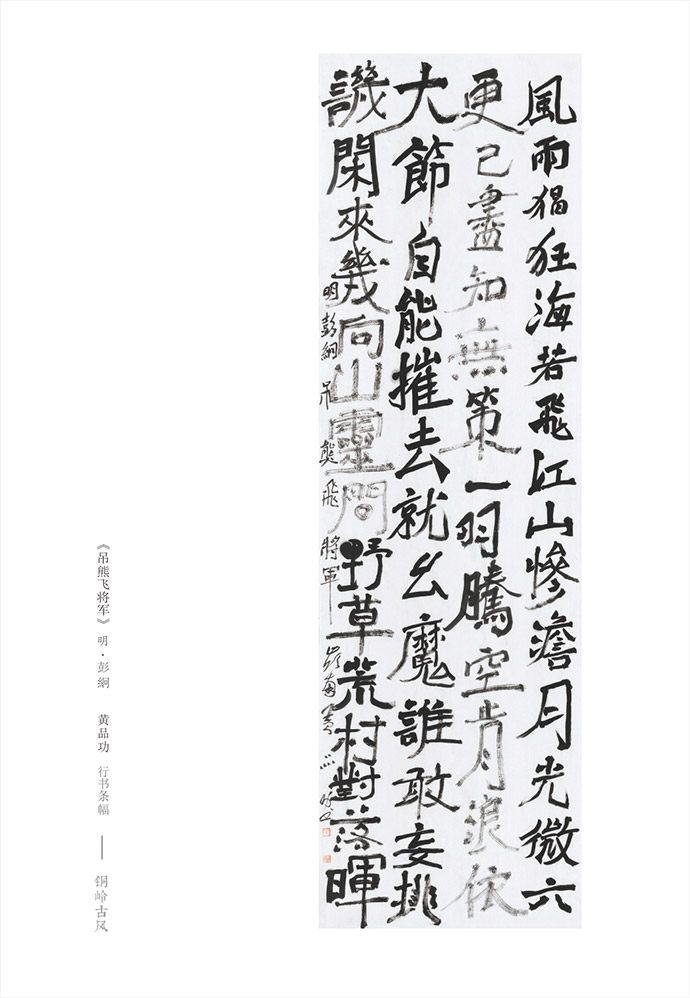 風雨猖狂海若飛江山慘澹月光微六
更已盡知無策一羽騰空肯浪依
大節自能摧去就幺魔誰敢妄排
譏閑來幾向山靈問野草荒村對落暉
明彭綱吊熊飛將軍 嶺南黃
《吊熊飞将军》 明·彭綱 黄品功 行书条幅 —— 铜岭古风